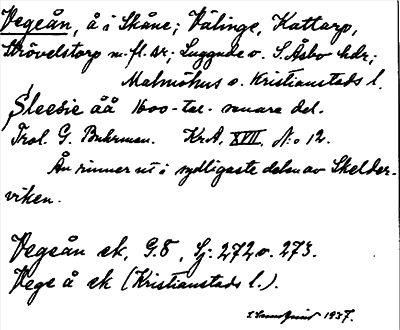 Vegeån, å i Skåne; Välinge, Kattarp,
Strövelstorp m. fl. sr; Luggude o. S. Åsbo hdr;
Malmöhus o. Kristianstads l.
Sleesie åå 1600-tal. senare del.
Trol. G. Buhrman. Kr.A. XVII, N:o 12.
Ån rinner ut i sydligaste delen av Skelder-
viken.
Vegeån ek, G.8, Sj. 272 o. 273.
Vege å ek (Kristianstads l.).
1937.